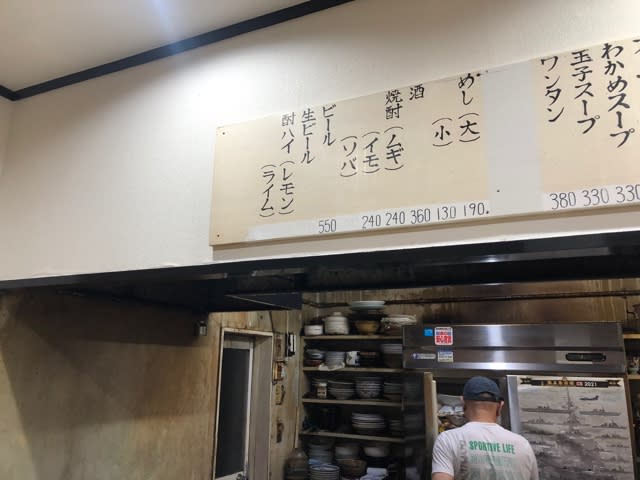 わかめスープ
玉子スープ
ワンタン
380 330 330
めし（大）
（小）
酒
焼酎（ムギ）
（イモ）
（ソバ）
ビール
生ビール
酎ハイ（レモン）
（ライム）
550 240 240 360 130 190.
SPORTIVE LIFE